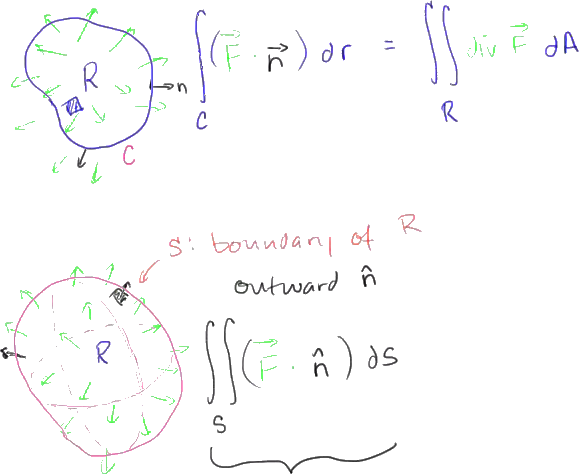 R
n
C
∫_C (F⃗ · n⃗) dr = ∬_R div F⃗ dA
S: boundary of R
outward n̂
R
∬_S (F⃗ · n̂) dS